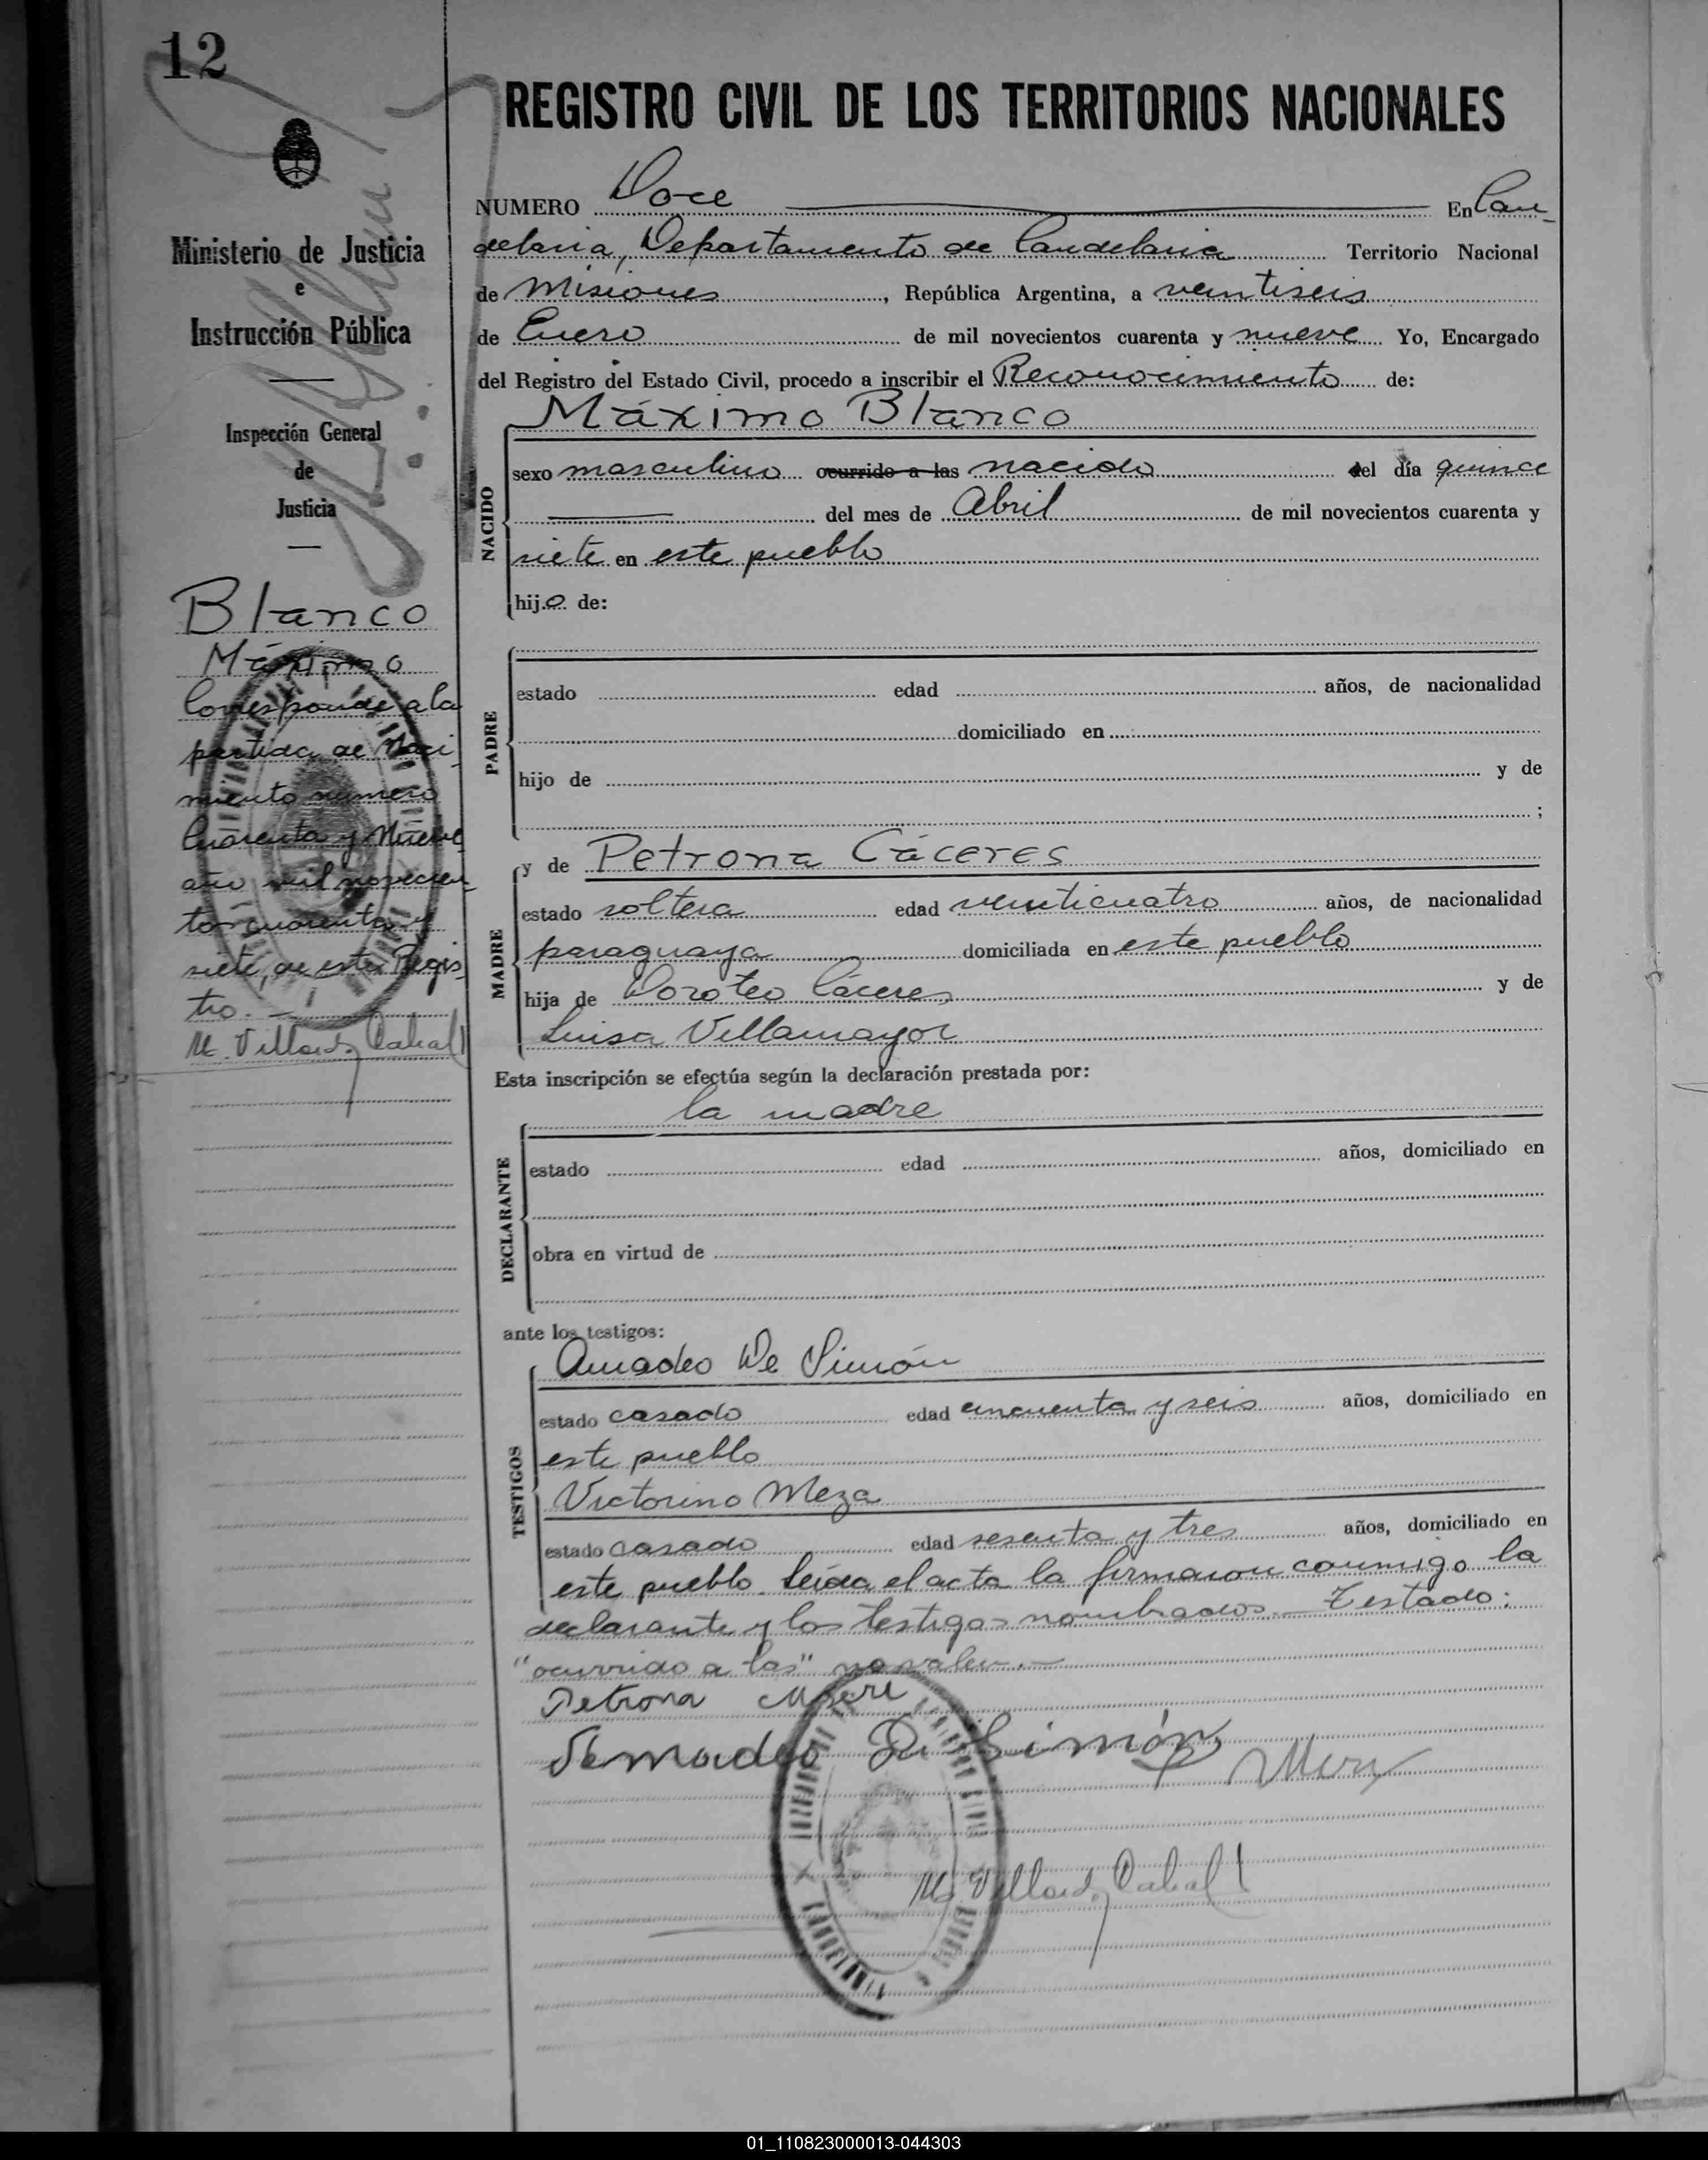 12
REGISTRO CIVIL DE LOS TERRITORIOS NACIONALES
NUMERO Doce En Can-
delaria, Departamento de Candelaria Territorio Nacional
de Misiones, República Argentina, a veintiseis
de Enero de mil novecientos cuarenta y nueve Yo, Encargado
del Registro del Estado Civil, procedo a inscribir el Reconocimiento de:
NACIDO
Máximo Blanco
sexo masculino ocurrido a las nacido del día quince
del mes de Abril de mil novecientos cuarenta y
siete en este pueblo
hijo de:
PADRE
estado edad años, de nacionalidad
domiciliado en
hijo de y de
;
MADRE
y de Petrona Cáceres
estado soltera edad veinticuatro años, de nacionalidad
paraguaya domiciliada en este pueblo
hija de Doroteo Cáceres y de
Luisa Villamayor
Esta inscripción se efectúa según la declaración prestada por:
DECLARANTE
la madre
estado edad años, domiciliado en
obra en virtud de
ante los testigos:
TESTIGOS
Amadeo De Simón
estado casado edad cincuenta y seis años, domiciliado en
este pueblo
Victorino Meza
estado casado edad sesenta y tres años, domiciliado en
este pueblo. Leída el acta la firmaron conmigo la
declarante y los testigos nombrados.- Testado:
"ocurrido a las" no valen.-
Petrona
Amadeo De Simón
Ministerio de Justicia
e
Instrucción Pública
Inspección General
de
Justicia
Blanco
Máximo
Corresponde a la
partida de Naci-
miento número
Cuarenta y Nueve
año mil novecien-
tos cuarenta y
siete, de este Regis-
tro.-
01_110823000013-044303